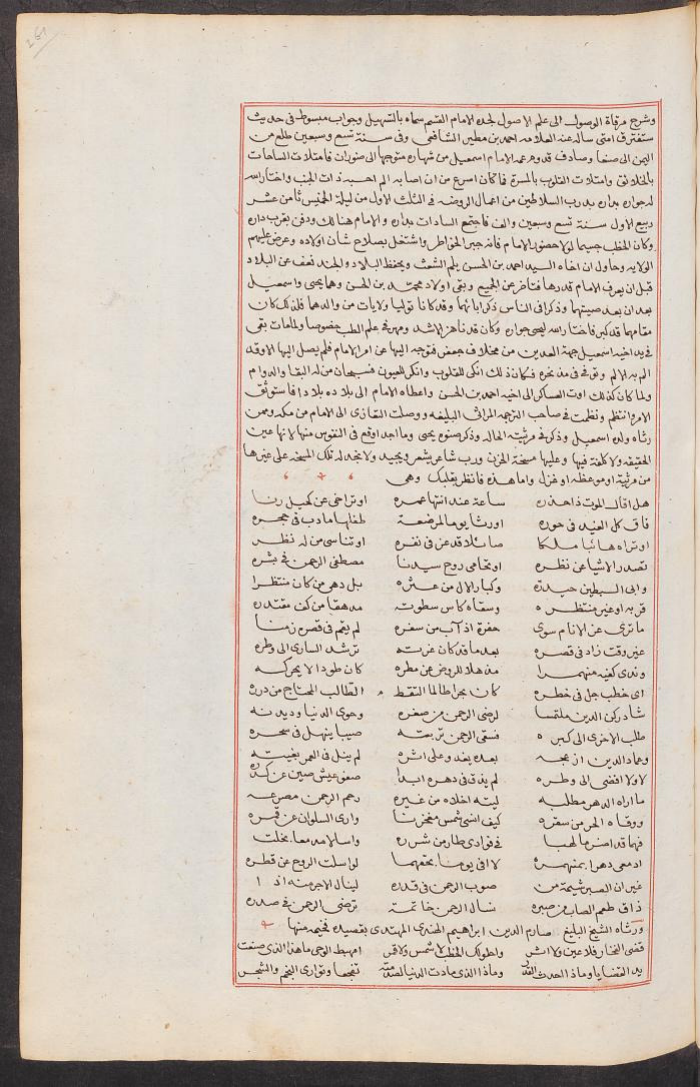 261
وشرح مرقاة الوصول الى علم الاصول لجده الامام القسم سماه بالتسهيل وجواب مبسوط في حديث
ستفترق امتي ساله عنه العلامه احمد بن مطير الشافعي وفي سنة تسع وسبعين طلع من
اليمن الى صنعا وصادف قدوم عمه الامام اسمعيل من شهاره متوجها الى ضوران فامتلات الساحات
بالخلائق وامتلات القلوب بالمسرة فما كان اسرع من ان اصابه الم احسبه ذات الجنب واختار الله
له جواره بداره بدرب السلاطين من اعمال الروضه في الثلث الاول من ليلة الخميس ثامن عشر
ربيع الاول سنة تسع وسبعين والف فاجتمع السادات بداره والامام هنالك ودفن بقرب داره
وكان الخطب جسيما لولا حضور الامام فانه جبر الخواطر واشتغل بصلاح شان اولاده وعرض عليهم
الولايه وحاول ان اخاه السيد احمد بن الحسن يلم الشعث ويحفظ البلاد والجند فعف عن البلاد
قبل ان يعرف الامام قدرها فتاخر عن الجميع وبقي اولاد محمد بن الحسن وهما يحيى واسمعيل
بعد ان بعد صيتهما وذكرا في الناس ذكرا بابائهما وقد كانا توليا ولايات من والدهما فلذلك كان
مقامهما قد كبر فاختار الله ليحيى جواره وكان قد ناهز الاشد ومهر في علم الطب خصوصا ولما مات بقي
في يد اخيه اسمعيل جهة العدين من مخلاف جعفر فتوجه اليها عن امر الامام فلم يصل اليها الا وقد
الم به الالم وتوفي في مذيخره فكان ذلك انكى للقلوب وانكى للعيون فسبحان من له البقا والدوام
ولما كان كذلك اوت العساكر الى اخيه احمد بن الحسن واعطاه الامام الى بلاده بلادا فاستوثق
الامر وانتظم ونظمت في صاحب الترجمه المراثي البليغه ووصلت التعازي الى الامام من مكه وممن
رثاه ولده اسمعيل وذكر في مرثيته الحاله وذكر صنوه يحيى وما اجد اوقع في النفوس منها لانها عين
الحقيقه ولا كلفة فيها وعليها مسحة الحزن ورب شاعر يشعر ويجيد ولا تجد له تلك المسحه على غيرها
من مرثية او موعظه او غزل واما هذه فانظر بقلبك وهي
هل اقال الموت ذا حذره ساعة عند انتها عمره او تراخى عن كحيل رنا
فاق كل الغيد في حوره اورثا يوما لمرضعة طفلها ما دب في حجره
او تراه هائبا ملكا صائلا قد عز في نفره او تناسى من له نظر
تصدر الاشيا عن نظره او تحامى روح سيدنا مصطفى الرحمن في بشره
وابى السبطين حيدرة وكبار الال من عتره بل دهى من كان منتظرا
قربه او غير منتظره وسقاه كاس سطوته مدهقا من كف مقتدره
ما ترى عن الانام سوى حفرة اذ آب من سفره لم يقم في قصره زمنا
غير وقت زاد في قصره بعد ما قد كان غرته ترشد الساري الى وطره
وندى كفيه منهمرا مذهلا للروض عن مطره كان طودا لا يحركه
اي خطب جل في خطره كان بحرا طالما التقط الطالب المحتاج من درره
شاد ركن الدين ملتمسا لرضى الرحمن من صغره وحوى الدنيا وديدنه
طلب الاخرى الى كبره فسقى الرحمن تربته صيبا ينهل في سحره
وعماد الدين ازعجه بعده يغدو على اثره لم ينل في العمر بغيته
لا ولا افضى الى وطره لم يذق في دهره ابدا صفو عيش صين عن كدره
ما اراه الدهر مطلبه ليته اخلاه من غيره رحم الرحمن مصرعه
ووقاه الحر من سقره كيف انسى شمس مفخرنا وارى السلوان عن قمره
فهما قد اضرما لهبا في فؤادي طار من شرره واسلا مدمعا بخلت
ادمعي دهرا بمنهمره لا افي يوما بحقهما لو اسلت الروح عن قطره
غير ان الصبر شيمة من صوب الرحمن في قدره لينال الاجر منه اذا
ذاق طعم الصاب من صبره نسال الرحمن خاتمة ترضي الرحمن في صدره
ورثاه الشيخ البليغ صارم الدين ابراهيم الهندي المهتدي بقصيده فخيمه منها
قضى الفخار فلا عين ولا اثر واطول الخطب لا شمس ولا قمر امهبط الوحي ما هذا الذي صنعت
يد القضايا وماذا احدث القدر وماذا الذي مادت الدنيا لصدمته تفجعا وتوارى النجم والشجر